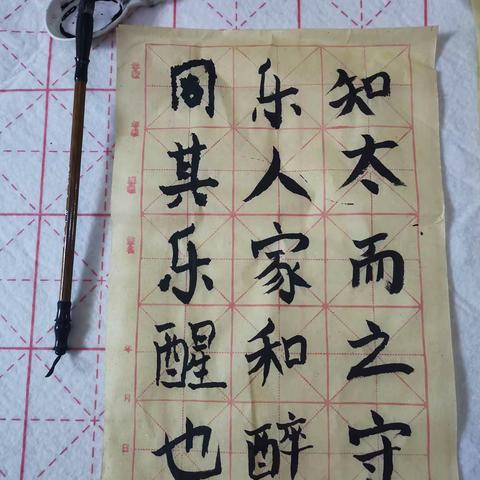 知太而之守
乐人家和醉
同其乐醒也
年 月 日